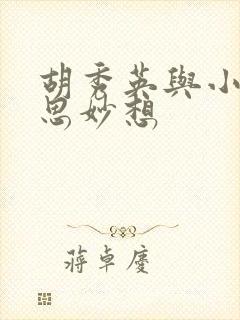 胡秀英與小
思妙想
蔣卓慶